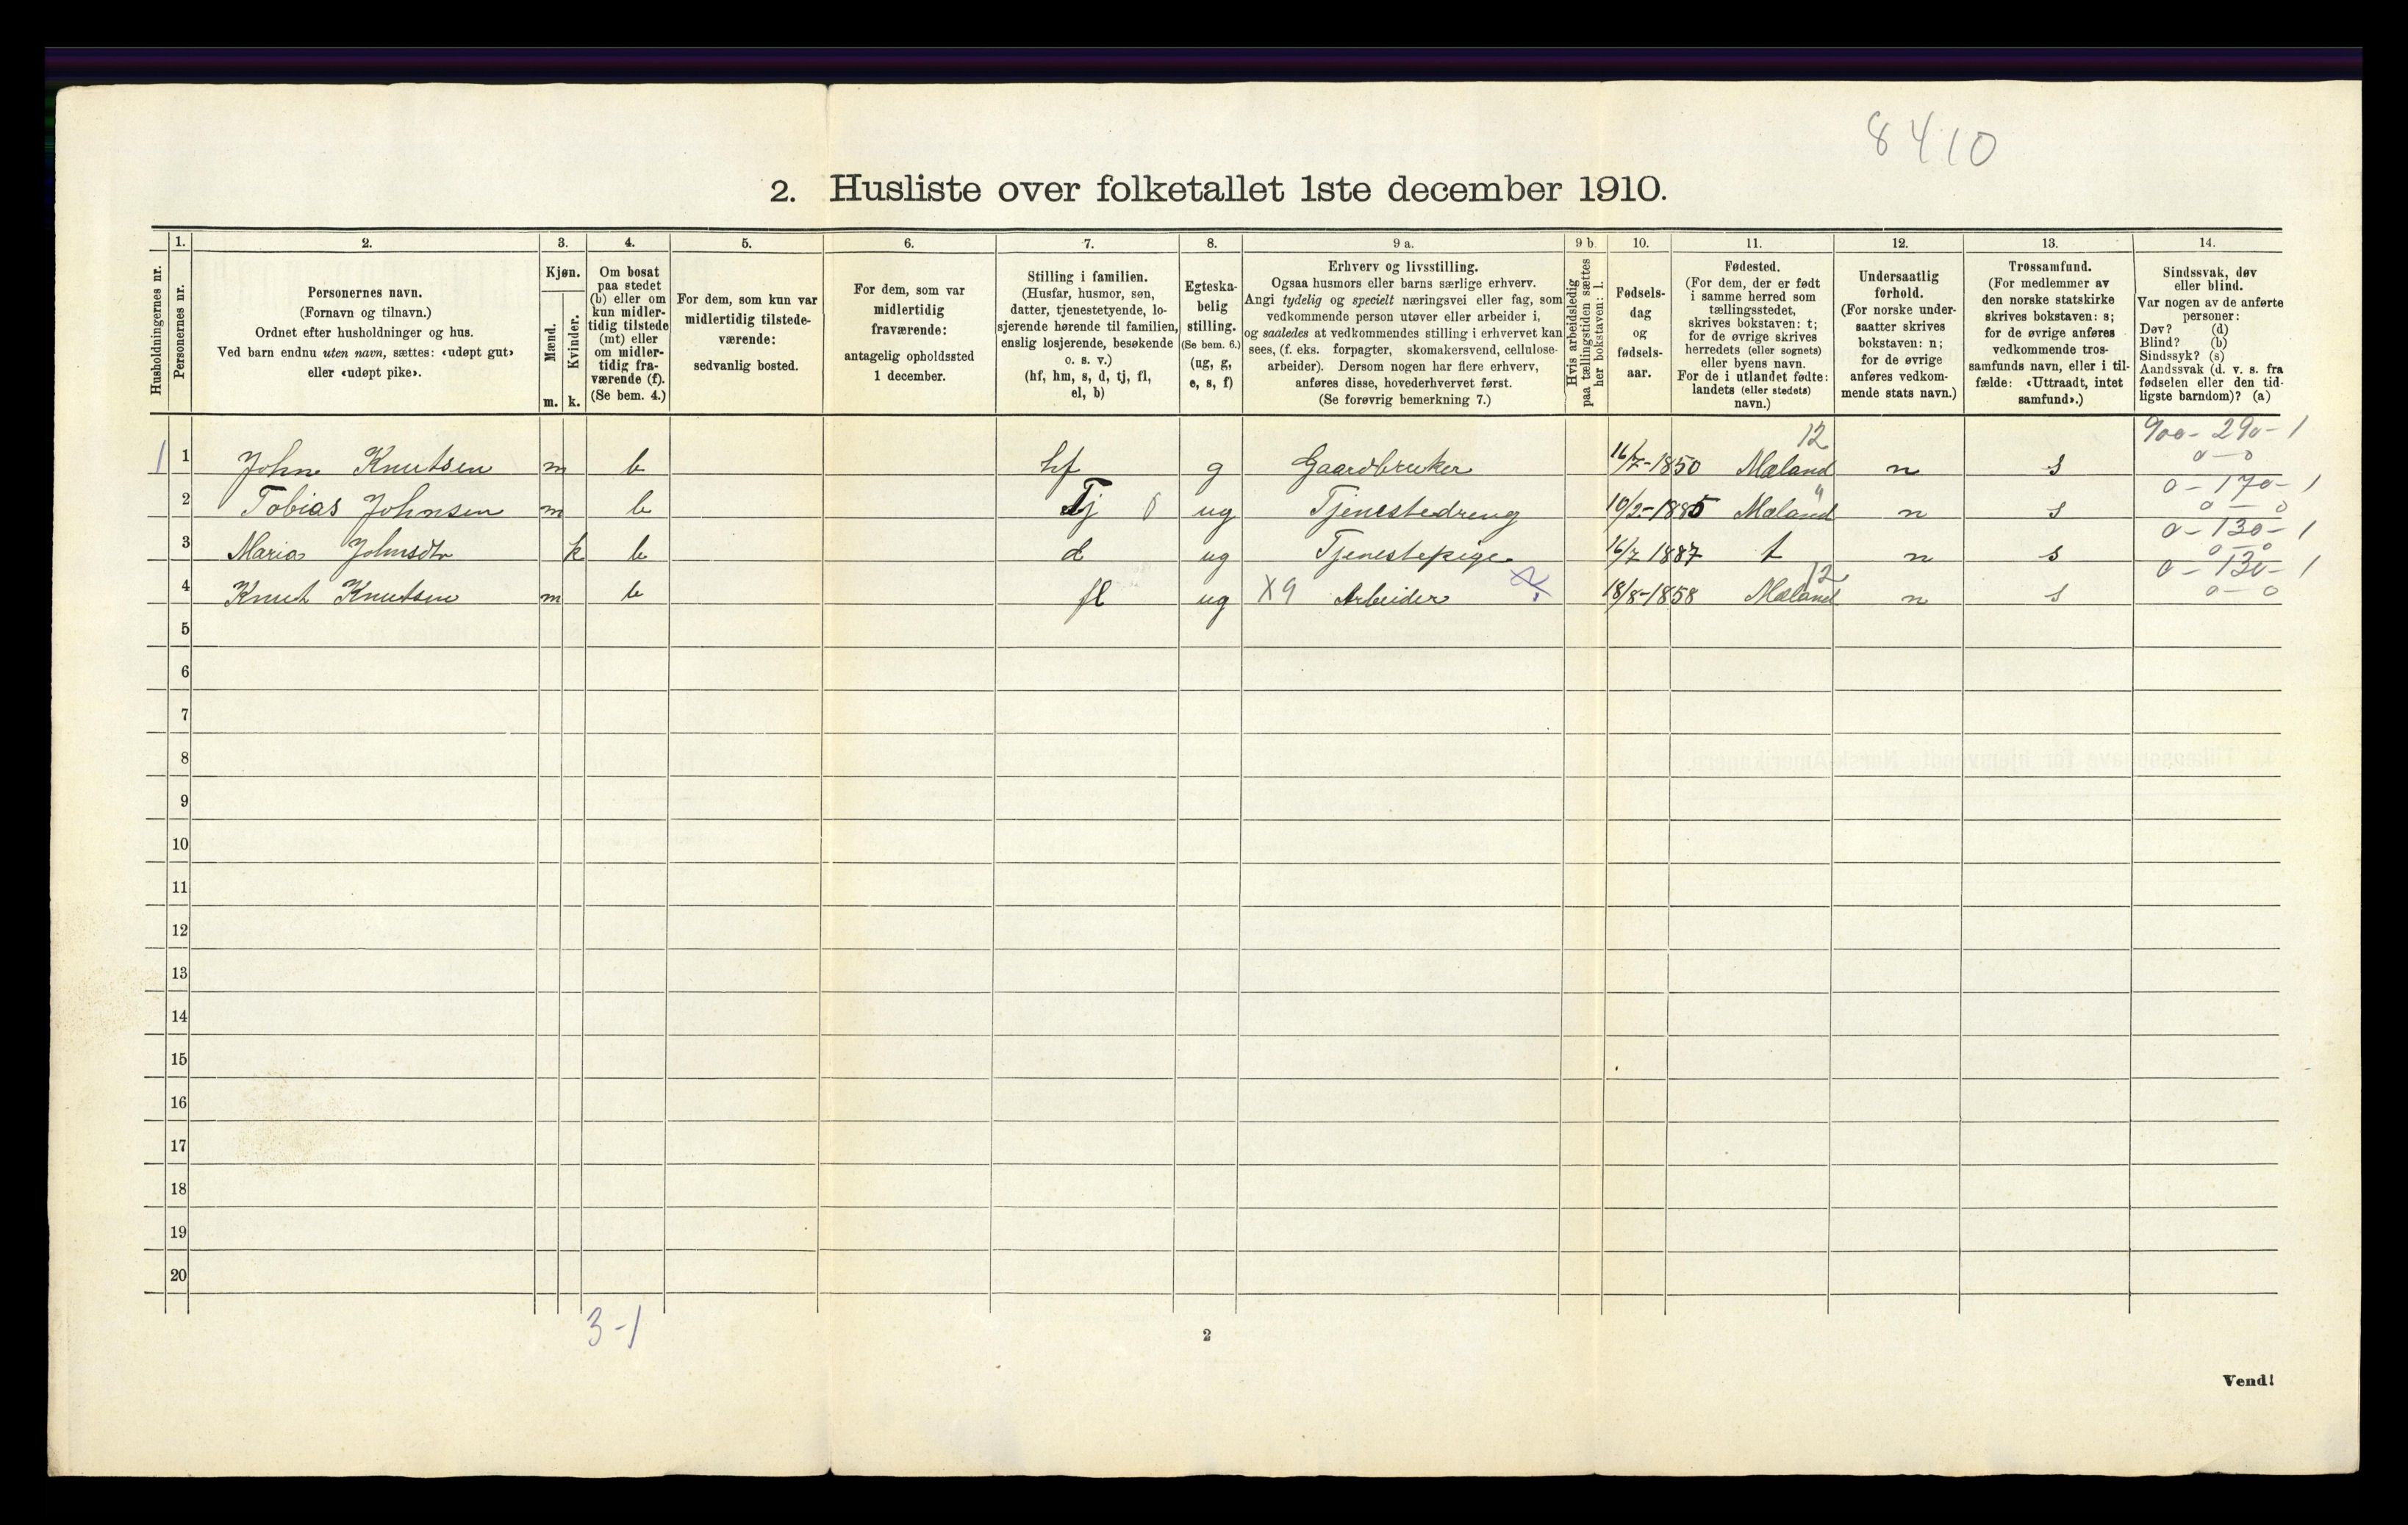 8410
2. Husliste over folketallet 1ste december 1910.
1. 2. 3. 4. 5. 6. 7. 8. 9 a. 9 b 10. 11. 12. 13. 14.
Husholdningernes nr.
Personernes nr.
Personernes navn.
(Fornavn og tilnavn.)
Ordnet efter husholdninger og hus.
Ved barn endnu uten navn, sættes: «udøpt gut»
eller «udøpt pike».
Kjøn.
Mænd.
Kvinder.
m. k.
Om bosat
paa stedet
(b) eller om
kun midler-
tidig tilstede
(mt) eller
om midler-
tidig fra-
værende (f).
(Se bem. 4.)
For dem, som kun var
midlertidig tilstede-
værende:
sedvanlig bosted.
For dem, som var
midlertidig
fraværende:
antagelig opholdssted
1 december.
Stilling i familien.
(Husfar, husmor, søn,
datter, tjenestetyende, lo-
sjerende hørende til familien,
enslig losjerende, besøkende
o. s. v.)
(hf, hm, s, d, tj, fl,
el, b)
Egteska-
belig
stilling.
(Se bem. 6.)
(ug, g,
e, s, f)
Erhverv og livsstilling.
Ogsaa husmors eller barns særlige erhverv.
Angi tydelig og specielt næringsvei eller fag, som
vedkommende person utøver eller arbeider i,
og saaledes at vedkommendes stilling i erhvervet kan
sees, (f. eks. forpagter, skomakersvend, cellulose-
arbeider). Dersom nogen har flere erhverv,
anføres disse, hovederhvervet først.
(Se forøvrig bemerkning 7.)
Hvis arbeidsledig
paa tællingstiden sættes
her bokstaven: l.
Fødsels-
dag
og
fødsels-
aar.
Fødested.
(For dem, der er født
i samme herred som
tællingsstedet,
skrives bokstaven: t;
for de øvrige skrives
herredets (eller sognets)
eller byens navn.
For de i utlandet fødte:
landets (eller stedets)
navn.)
Undersaatlig
forhold.
(For norske under-
saatter skrives
bokstaven: n;
for de øvrige
anføres vedkom-
mende stats navn.)
Trossamfund.
(For medlemmer av
den norske statskirke
skrives bokstaven: s;
for de øvrige anføres
vedkommende tros-
samfunds navn, eller i til-
fælde: «Uttraadt, intet
samfund».)
Sindssvak, døv
eller blind.
Var nogen av de anførte
personer:
Døv? (d)
Blind? (b)
Sindssyk? (s)
Aandssvak (d. v. s. fra
fødselen eller den tid-
ligste barndom)? (a)
12 900- 290- 1
1 1 John Knutsen m b hf g Gaardbruker 16/7-1850 Mæland n s 0-0
" 0-170-1
2 Tobias Johnsen m b Tj ug Tjenestedreng 10/2-1885 Mæland n s 0-0
0-130-1
3 Maria Johnsdtr k b d ug Tjenestepige 16/7 1887 t n s 0-0
12 0-130-1
4 Knut Knutsen m b fl ug X9 Arbeider 18/8-1858 Mæland n s 0-0
5
6
7
8
9
10
11
12
13
14
15
16
17
18
19
20
3-1
2
Vend!